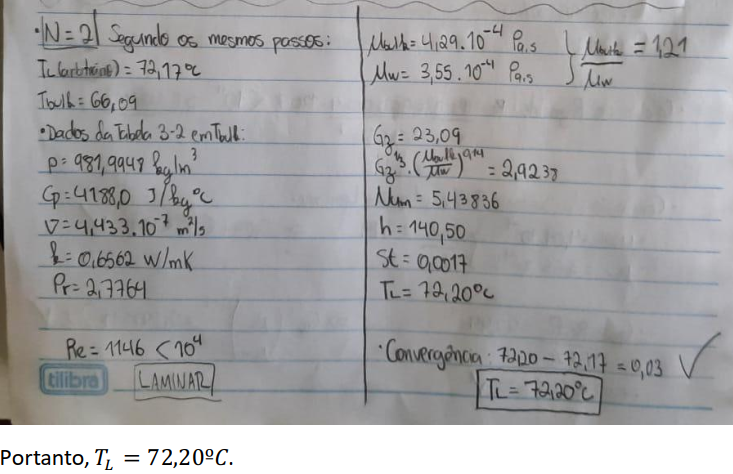 • N = 2 Segundo os mesmos passos:
TL (arbitrário) = 72,17°C
Tbulk = 66,09
• Dados da Tabela 3-2 em Tbulk:
ρ = 981,9948 kg/m³
Cp = 4188,0 J/kg°C
ν = 4,433.10⁻⁷ m²/s
k = 0,6562 W/mK
Pr = 2,7764
Re = 1146 < 10⁴
tilibra
LAMINAR
μbulk = 4,29.10⁻⁴ Pa.s
μw = 3,55.10⁻⁴ Pa.s } μbulk/μw = 1,21
Gz = 23,09
Gz^1/3 . (μbulk/μw)^0,14 = 2,9238
Num = 5,43836
h = 140,50
St = 0,0017
TL = 72,20°C
• Convergência: 72,20 - 72,17 = 0,03 ✓
TL = 72,20°C
Portanto, T_L = 72,20ºC.